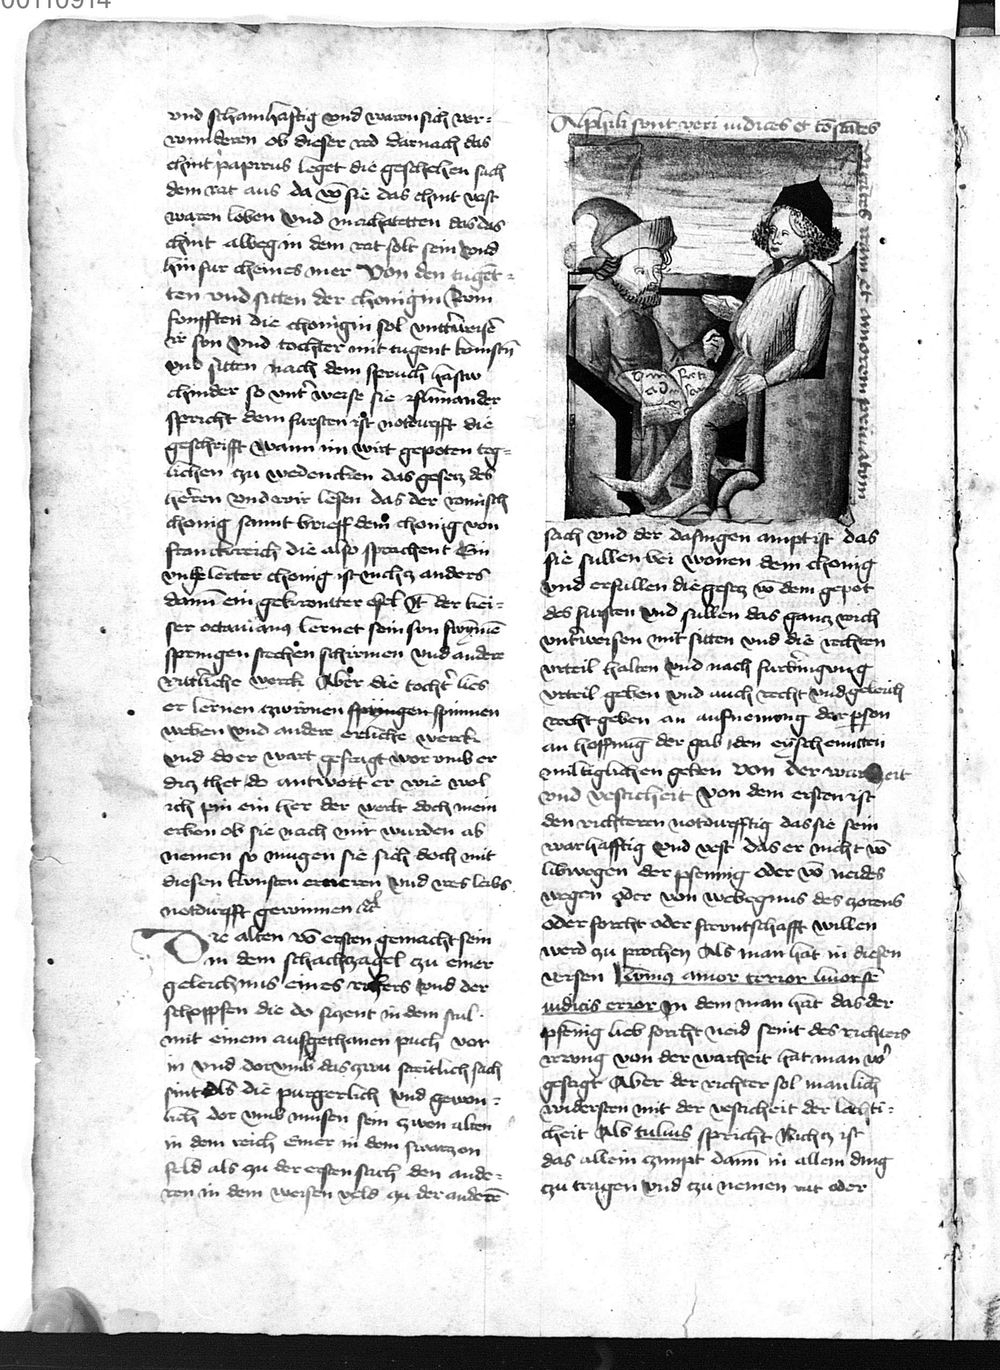 00110914
vnd schamhafftig vnd waren sich ver-
wunderen ob dieser red darnach das
chint papirus leget die geschehen sach
dem rat aus da vō sie das chint vest
waren loben vnd machtetten das das
chint albeg in dem rat solt sein vnd
hin fur cheines mer Von den tugēt-
ten vnd sitten der chonigin Zum
fonfften die chonigin sol vnterweisē
ir son vnd tochter mit tugent kunstn̄
vnd sitten nach dem spruch hastw
chinder so vnter weise sie
spricht dem fursten ist notdurfft die
geschrifft wann im wirt gepoten teg-
lichen zu wedencken das gesetz des
herren vnd wir lesen das der romisch
chonig sannt brieff dem chonig von
franckreich die also sprachent Ein
vngelerter chonig ist nichtz anders
dann ein gekronter esel It der kei-
ser octauianus lernet sein sun swymē
springen stechen schirmen vnd andere
ritterliche werck Aber die tochter lies
er lernen zwirnen springen spinnen
weben vnd andere erliche werck
vnd do er wart gefragt wor vmb er
ditz thet do antwort er wie wol
ich pin ein her der werlt doch mein
erben ob sie nach mir wurden ab
nemen so mugen sie sich doch mit
diesen kunsten erneren vnd res leibs
notdurfft gewinnen etc
Die alten vō ersten gemacht sein
in dem schachzagel zu einer
geleichnus eines richters vnd der
schopffen die do sitzent in dem stul
mit einem aufgethanen puch vor
in vnd dorvmb das zwu streitlich sach
sint als die purgerlich vnd gewon-
lich dor vmb musen sein zwen alten
in dem reich einer in dem swartzen
feld als zu der ersten sach den ande-
ren in dem weisen veld zu der anderē
Alphili sunt veri iudices et
sach vnd der dasingen ampt ist das
sie sullen bei wonen dem chonig
vnd erfullen die gesetz vō dem gepot
des fursten vnd sullen das gantz reich
vnterweisen mit sitten vnd die rechten
vrteil halten vnd nach furbringung
vrteil geben vnd auch recht vnd geleich
recht geben an aufnemung der person
an hoffnug der gab
miltiglichen geben Von der warheit
vnd vesticheit Von dem ersten ist
den richteren notdurfftig das sie sein
warhafftig vnd vest das er nicht vō
lib wegen der pfennig oder vō neides
wegen oder von webegnus des zorens
oder forcht oder freuntschafft willen
werd zu prochen Als man hat in diesen
versen Liuius amor terror
iudicis error In dem man hat das der
pfenig lieb forcht neid seint des richters
irrung von der warheit hat man vor
gesagt Aber der richter sol manlich
widersten mit der vesticheit der
cheit Als tulius spricht Nichtz ist
das allein zimpt dann in allem ding
zu tragen vnd zu nemen rat oder